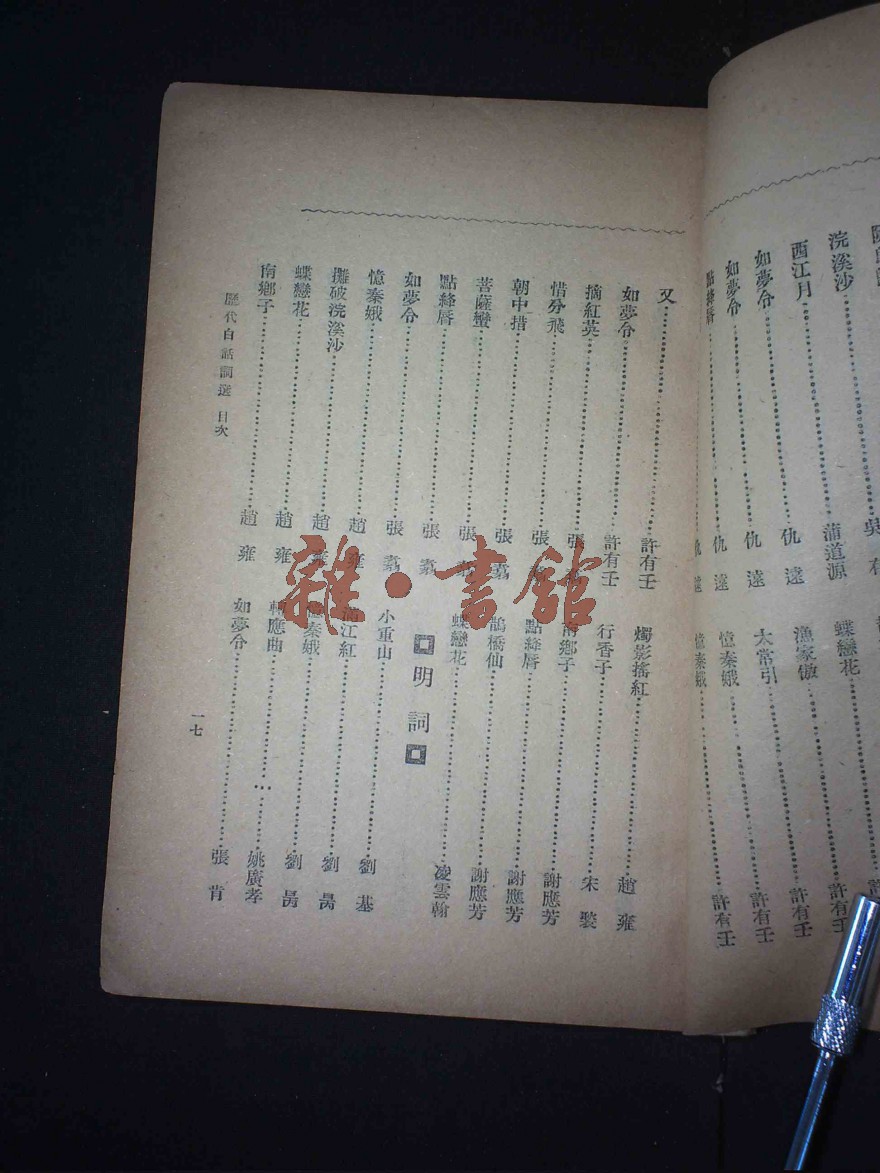 浣溪沙……蒲道源
西江月……仇遠
如夢令……仇遠
如夢令……仇遠
點絳脣……仇遠
蝶戀花……許有壬
漁家傲……許有壬
太常引……許有壬
憶秦娥……許有壬
憶秦娥……
又……許有壬
如夢令……許有壬
摘紅英……張翥
惜分飛……張翥
朝中措……張翥
菩薩蠻……張翥
點絳脣……張翥
如夢令……張翥
憶秦娥……趙雍
攤破浣溪沙……趙雍
蝶戀花……趙雍
南鄉子……趙雍
燭影搖紅……趙雍
行香子……宋褧
南鄉子……謝應芳
點絳脣……謝應芳
鵲橋仙……謝應芳
蝶戀花……凌雲翰
明詞
小重山……劉基
滿江紅……劉昺
憶秦娥……劉昺
轉應曲……姚廣孝
如夢令……張肯
歷代白話詞選 目次
一七
雜·書館